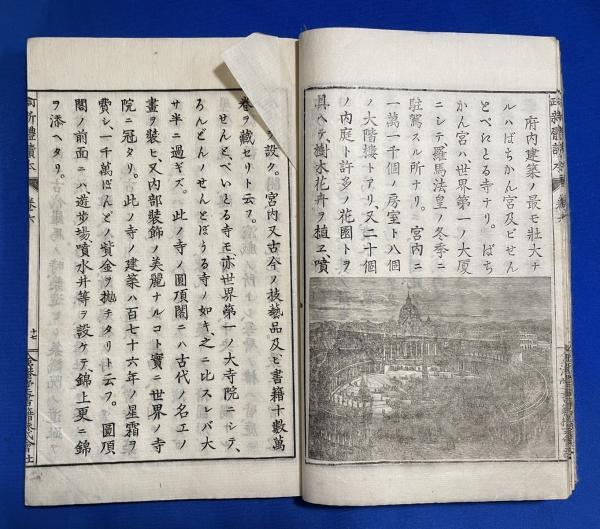 府內建築ノ最モ壯大ナ
ルハばちかん宮及ビせん
とべいとる寺ナリ。ばち
かん宮ハ世界第一ノ大厦
ニシテ羅馬法皇ノ冬季ニ
駐駕スル所ナリ。宮內ニ
一萬一千個ノ房室ト八個
ノ大階樓トアリ、又二十個
ノ内庭ト許多ノ花園トヲ
具ヘテ、樹木花卉ヲ植ヱ、噴
ヲ設ク。宮內又古今ノ技藝品及ビ書籍十數萬
卷ヲ藏セリト云フ。
せんとべいとる寺モ亦世界第一ノ大寺院ニシテ、
ろんどんノせんとぽうる寺ノ如キ、之ニ比スレバ大
サ半ニ過ギズ。此ノ寺ノ圓頂閣ニハ古代ノ名工ノ
畫ヲ裝ヒ、又內部裝飾ノ美麗ナルコト實ニ世界ノ寺
院ニ冠タリ。此ノ寺ノ建築ハ百七十六年ノ星霜ヲ
費シ一千萬ぽんどノ黃金ヲ抛チタリト云フ。圓頂
閣ノ前面ニハ、遊步場噴水井等ヲ設ケテ、錦上更ニ錦
ヲ添ヘタリ。
新體讀本
卷六
十七